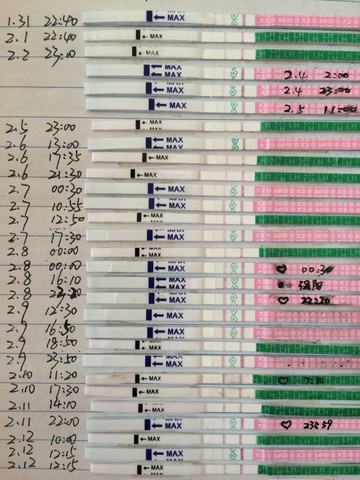 1.31 22:40 ←MAX
2.1 22:40 ←MAX
2.2 23:00 ←MAX
←MAX 2.4 2:00
←MAX 2.4 23:00
←MAX 2.5 11:00
2.5 23:00 ←MAX
2.6 13:00 ←MAX
2.6 17:35 ←MAX
2.6 21:30 ←MAX
2.7 00:30 ←MAX
2.7 10:55 ←MAX
2.7 12:50 ←MAX
2.7 17:30 ←MAX
2.8 00:00 ←MAX
2.8 00:00 ←MAX 00:30
2.8 16:10 ←MAX 强阳
2.8 22:20 ←MAX 22:20
2.9 12:30 ←MAX
2.9 16:50 ←MAX
2.9 18:50 ←MAX
2.9 23:50 ←MAX
2.10 11:20 ←MAX
2.10 17:30 ←MAX
2.11 14:10 ←MAX
2.11 22:00 ←MAX 23:59
2.12 10:00 ←MAX
2.12 12:15 ←MAX
2.12 12:15 ←MAX